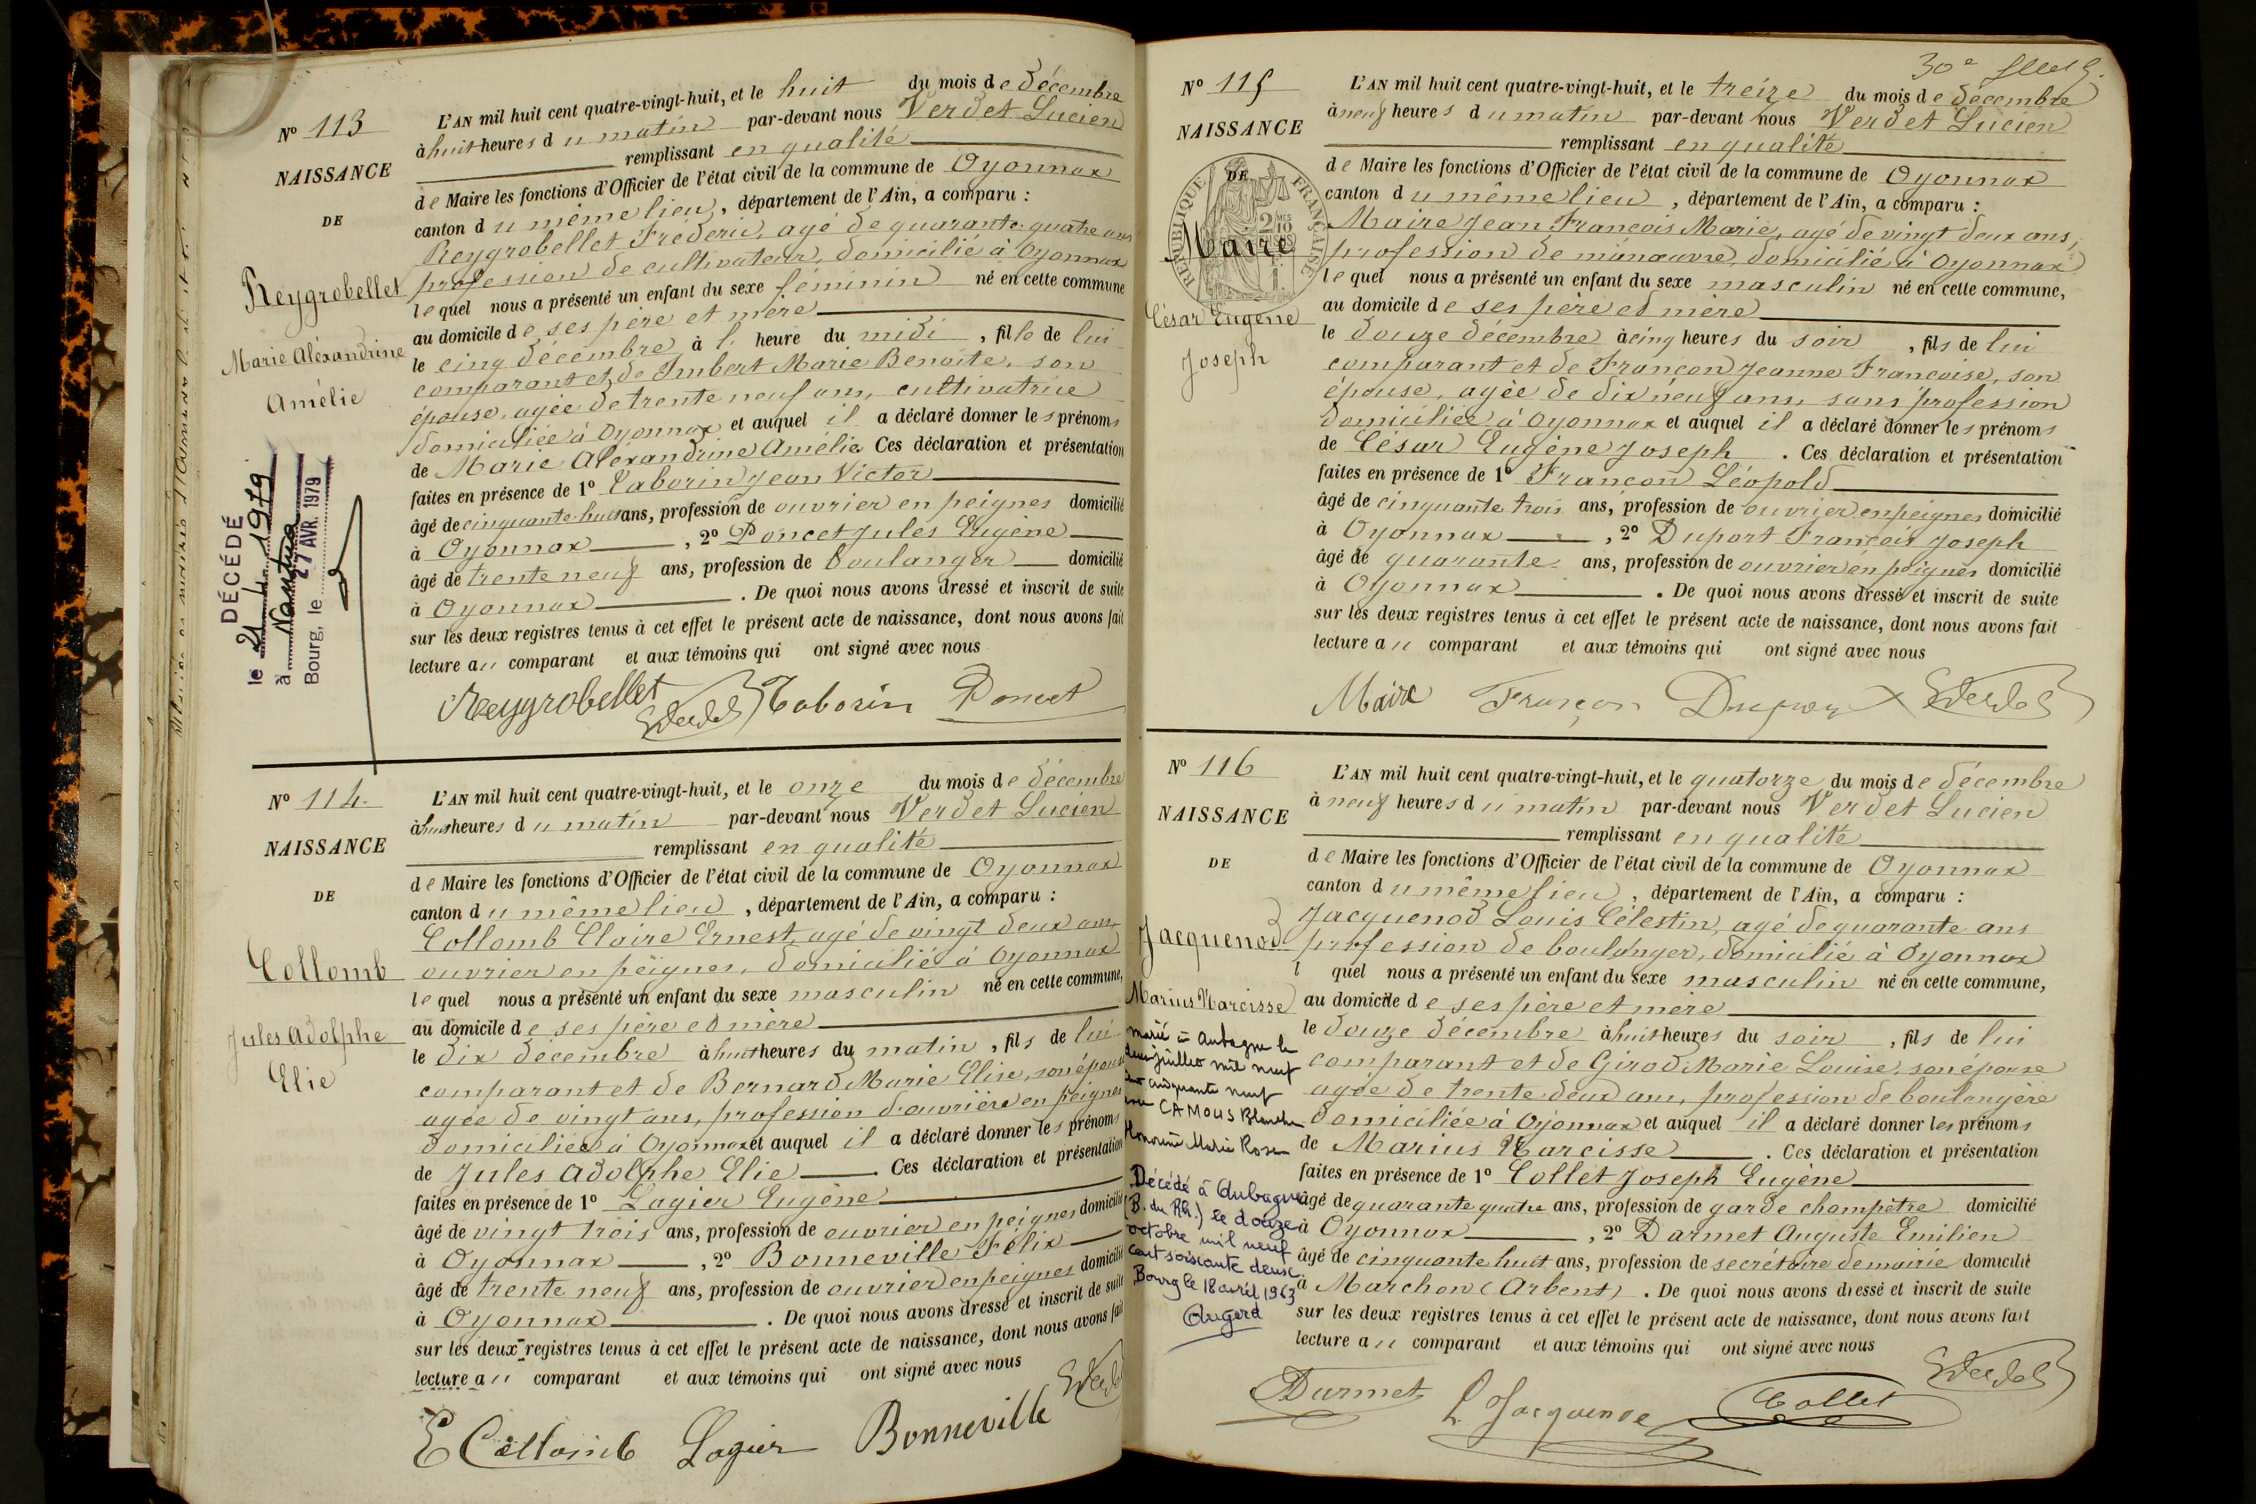 Nº 113
NAISSANCE
DE
Reygrobellet
Marie Aléxandrine
Amélie
DÉCÉDÉ
le 21.4.1979
à Nantua
Bourg, le 27 AVR. 1979
L'AN mil huit cent quatre-vingt-huit, et le huit du mois de décembre
à huit heures du matin par-devant nous Verdet Lucien
remplissant en qualité
de Maire les fonctions d'Officier de l'état civil de la commune de Oyonnax
canton du même lieu, département de l'Ain, a comparu :
Reygrobellet Fréderic, agé de quarante quatre ans
profession de cultivateur, domicilié à Oyonnax
lequel nous a présenté un enfant du sexe féminin né en cette commune
au domicile de ses père et mère
le cinq décembre à l' heure du midi, fille de lui
comparant et de Imbert Marie Benoite, son
épouse, agée de trente neuf ans, cultivatrice
domiciliée à Oyonnax et auquel il a déclaré donner les prénoms
de Marie Alexandrine Amélie Ces déclaration et présentation
faites en présence de 1º Taborin Jean Victor
âgé de cinquante-huit ans, profession de ouvrier en peignes domicilié
à Oyonnax, 2º Poncet Jules Eugène
âgé de trente neuf ans, profession de boulanger domicilié
à Oyonnax. De quoi nous avons dressé et inscrit de suite
sur les deux registres tenus à cet effet le présent acte de naissance, dont nous avons fait
lecture au comparant et aux témoins qui ont signé avec nous
Reygrobellet Verdet Taborin Poncet
Nº 114
NAISSANCE
DE
Collomb
Jules Adolphe
Elie
L'AN mil huit cent quatre-vingt-huit, et le onze du mois de décembre
à huit heures du matin par-devant nous Verdet Lucien
remplissant en qualité
de Maire les fonctions d'Officier de l'état civil de la commune de Oyonnax
canton du même lieu, département de l'Ain, a comparu :
Collomb Claire Ernest, agé de vingt deux ans,
ouvrier en peignes, domicilié à Oyonnax
lequel nous a présenté un enfant du sexe masculin né en cette commune,
au domicile de ses père et mère
le dix décembre à huit heures du matin, fils de lui
comparant et de Bernard Marie Elise, son épouse
agée de vingt ans, profession d'ouvrière en peignes
domiciliée à Oyonnax et auquel il a déclaré donner les prénoms
de Jules Adolphe Elie Ces déclaration et présentation
faites en présence de 1º Lagier Eugène
âgé de vingt trois ans, profession de ouvrier en peignes domicilié
à Oyonnax, 2º Bonneville Félix
âgé de trente neuf ans, profession de ouvrier en peignes domicilié
à Oyonnax. De quoi nous avons dressé et inscrit de suite
sur les deux registres tenus à cet effet le présent acte de naissance, dont nous avons fait
lecture au comparant et aux témoins qui ont signé avec nous
E Collomb Lagier Bonneville Verdet
30e
Nº 115
NAISSANCE
DE
RÉPUBLIQUE FRANÇAISE
Maire
César Eugène
Joseph
L'AN mil huit cent quatre-vingt-huit, et le treize du mois de décembre
à neuf heures du matin par-devant nous Verdet Lucien
remplissant en qualité
de Maire les fonctions d'Officier de l'état civil de la commune de Oyonnax
canton du même lieu, département de l'Ain, a comparu :
Maire Jean François Marie, agé de vingt deux ans,
profession de manœuvre, domicilié à Oyonnax
lequel nous a présenté un enfant du sexe masculin né en cette commune,
au domicile de ses père et mère
le douze décembre à cinq heures du soir, fils de lui
comparant et de Françon Jeanne Françoise, son
épouse, agée de dix neuf ans, sans profession
domiciliée à Oyonnax et auquel il a déclaré donner les prénoms
de César Eugène Joseph. Ces déclaration et présentation
faites en présence de 1º Françon Léopold
âgé de cinquante trois ans, profession de ouvrier en peignes domicilié
à Oyonnax, 2º Duport François Joseph
âgé de quarante ans, profession de ouvrier en peignes domicilié
à Oyonnax. De quoi nous avons dressé et inscrit de suite
sur les deux registres tenus à cet effet le présent acte de naissance, dont nous avons fait
lecture au comparant et aux témoins qui ont signé avec nous
Maire Françon Duport Verdet
Nº 116
NAISSANCE
DE
Jacquenod
Marius Narcisse
marié à Aubagne le
deux juillet mil neuf
cent cinquante neuf
avec CAMOUS Blanche
Honorine Marie Rose
Décédé à Aubagne
(B. du Rh.) le douze
octobre mil neuf
cent soixante deux
Bourg le 18 avril 1963
L'AN mil huit cent quatre-vingt-huit, et le quatorze du mois de décembre
à neuf heures du matin par-devant nous Verdet Lucien
remplissant en qualité
de Maire les fonctions d'Officier de l'état civil de la commune de Oyonnax
canton du même lieu, département de l'Ain, a comparu :
Jacquenod Louis Célestin, agé de quarante ans
profession de boulanger, domicilié à Oyonnax
l quel nous a présenté un enfant du sexe masculin né en cette commune,
au domicile de ses père et mère
le douze décembre à huit heures du soir, fils de lui
comparant et de Girod Marie Louise, son épouse
agée de trente deux ans, profession de boulangère
domiciliée à Oyonnax et auquel il a déclaré donner les prénoms
de Marius Narcisse. Ces déclaration et présentation
faites en présence de 1º Collet Joseph Eugène
âgé de quarante quatre ans, profession de garde champêtre domicilié
à Oyonnax, 2º Darmet Auguste Emilien
âgé de cinquante huit ans, profession de secrétaire de mairie domicilié
à Marchon (Arbent). De quoi nous avons dressé et inscrit de suite
sur les deux registres tenus à cet effet le présent acte de naissance, dont nous avons fait
lecture au comparant et aux témoins qui ont signé avec nous
Darmet L. Jacquenod Collet Verdet